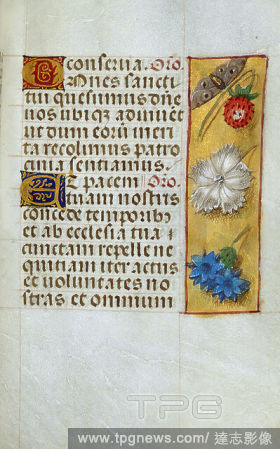 conserua. Oro.
Omnes sancti
tui quesumus dne
nos ubiqȝ adiuuēt
ut dum eorū merita
recolimus patro
cinia sentiamus.
Et pacem Oro.
tuam nostris
concede temporibꝰ
et ab ecclesia tua
cunctam repelle ne
quitiam iter actus
et uoluntates no
stras et omnium
TPG
www.tpgnews.com/ 達志影像